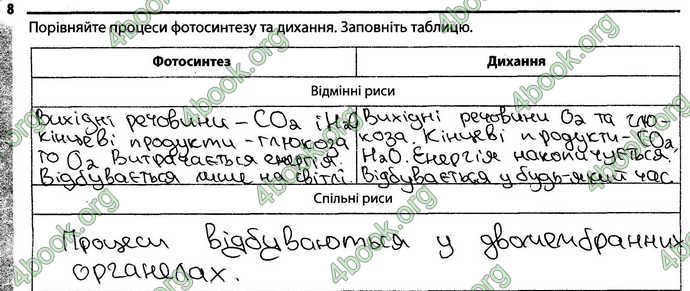 8
Порівняйте процеси фотосинтезу та дихання. Заповніть таблицю.
Фотосинтез Дихання
Відмінні риси
Вихідні речовини – CO2 і H2O Вихідні речовини O2 та глю-
кінцеві продукти – глюкоза коза. Кінцеві продукти – CO2,
то O2. Витрачається енергія. H2O. Енергія накопичується.
Відбувається лише на світлі. Відбувається у будь-який час
Спільні риси
Процеси відбуваються у двомембранних
органелах.
4book.org